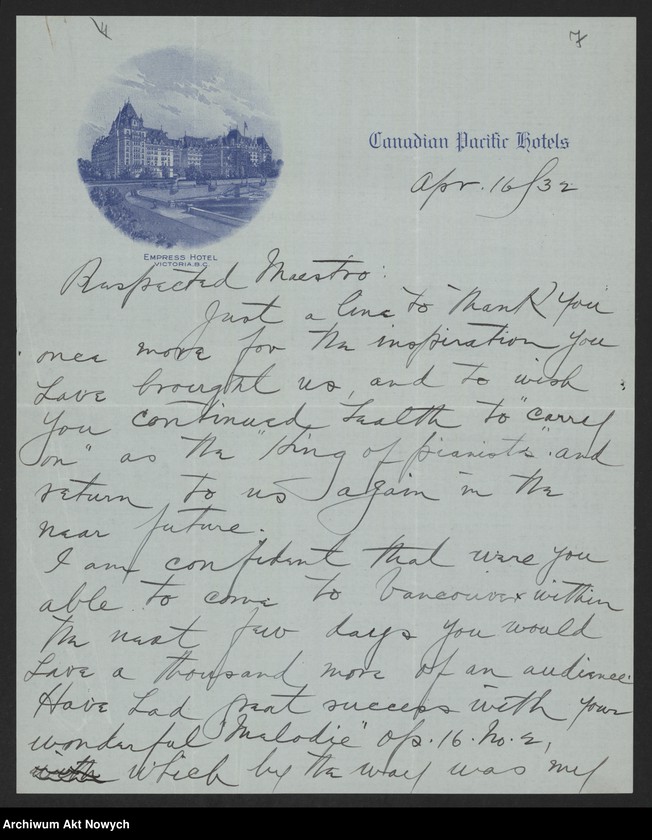 7
Canadian Pacific Hotels
Apr. 16/32
EMPRESS HOTEL
VICTORIA.B.C.
Respected Maestro:
Just a line to thank you
once more for the inspiration you
have brought us, and to wish
you continued health to "carry
on" as the "King of pianists" and
return to us again in the
near future.
I am confident that were you
able to come to Vancouver within
the next few days you would
have a thousand more of an audience.
Have had great success with your
wonderful "Melodie" op. 16. No. 2,
which by the way was my
Archiwum Akt Nowych